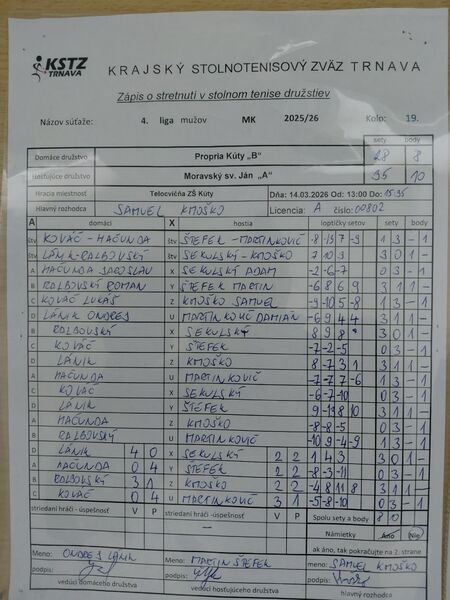 KSTZ
TRNAVA
KRAJSKÝ STOLNOTENISOVÝ ZVÄZ TRNAVA
Zápis o stretnutí v stolnom tenise družstiev
Názov súťaže: 4. liga mužov MK 2025/26 Kolo: 19.
sety body
Domáce družstvo Propria Kúty „B" 28 8
Hosťujúce družstvo Moravský sv. Ján „A" 35 10
Hracia miestnosť Telocvičňa ZŠ Kúty Dňa: 14.03.2026 Od: 13:00 Do: 15:35
Hlavný rozhodca SAMUEL KMOŠKO Licencia: A číslo: 00802
A domáci X hostia loptičky setov sety body
štv KOVÁČ - MAČUNDA štv ŠTEFEK - MARTINKOVIČ -8 -13 7 -9 1 3 - 1
štv LÁNIK - RALBOVSKÝ štv SEKULSKÝ - KMOŠKO 7 10 3 3 0 1 -
A MAČUNDA JAROSLAV X SEKULSKÝ ADAM -2 -6 -7 0 3 - 1
B RALBOVSKÝ ROMAN Y ŠTEFEK MARTIN -6 8 6 9 3 1 1 -
C KOVÁČ LUKÁŠ Z KMOŠKO SAMUEL -9 -10 5 -8 1 3 - 1
D LÁNIK ONDREJ U MARTINKOVIČ DAMIÁN -6 9 4 4 3 1 1 -
B RALBOVSKÝ X SEKULSKÝ 8 9 8 3 0 1 -
C KOVÁČ Y ŠTEFEK -7 -2 -5 0 3 - 1
D LÁNIK Z KMOŠKO 8 -7 3 1 3 1 1 -
A MAČUNDA U MARTINKOVIČ -7 -7 7 -6 1 3 - 1
C KOVÁČ X SEKULSKÝ -6 -7 -10 0 3 - 1
D LÁNIK Y ŠTEFEK 9 -13 8 10 3 1 1 -
A MAČUNDA Z KMOŠKO -8 -8 -5 0 3 - 1
B RALBOVSKÝ U MARTINKOVIČ -10 9 -4 -9 1 3 - 1
D LÁNIK 4 0 X SEKULSKÝ 2 2 1 4 3 3 0 1 -
A MAČUNDA 0 4 Y ŠTEFEK 2 2 -8 -3 -11 0 3 - 1
B RALBOVSKÝ 3 1 Z KMOŠKO 2 2 -4 8 11 8 3 1 1 -
C KOVÁČ 0 4 U MARTINKOVIČ 3 1 -5 -8 -10 0 3 - 1
striedaní hráči - úspešnosť V P striedaní hráči - úspešnosť V P Spolu sety a body 8 10
Námietky Áno Nie
ak áno, tak pokračujte na 2. strane
Meno: ONDREJ LÁNIK meno: MARTIN ŠTEFEK meno: SAMUEL KMOŠKO
podpis: podpis: podpis:
vedúci domáceho družstva vedúci hosťujúceho družstva hlavný rozhodca